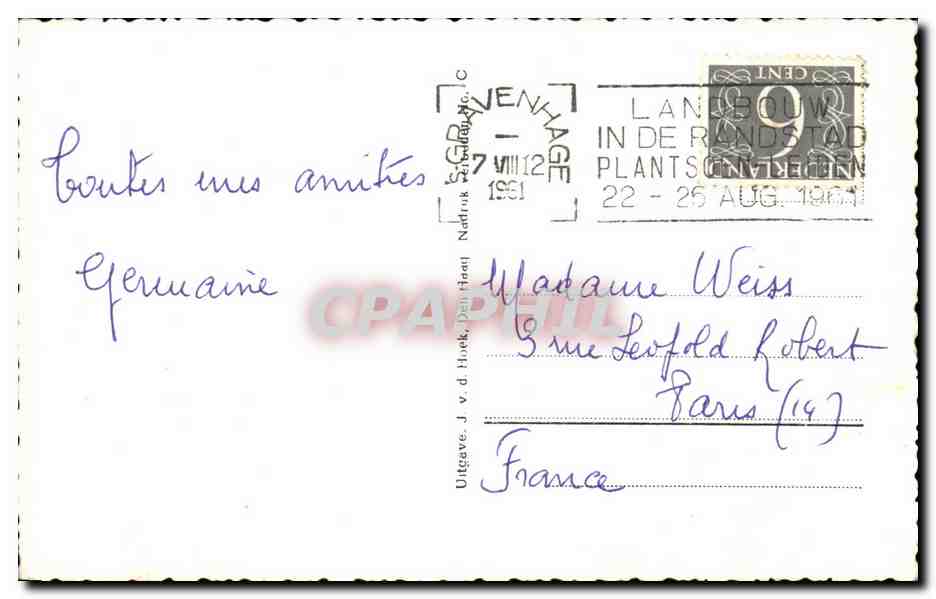 Toutes mes amitiés
Germaine
Utgave. J. v. d. Hoek, Den Haag Nadruk verboden No. C
'S-GRAVENHAGE
7 VIII 12
1961
LANDBOUW
IN DE RANDSTAD
PLANTSOEN-LEIDEN
22 - 26 AUG. 1961
6
CENT
NEDERLAND
Madame Weiss
9 rue Léopold Robert
Paris (14)
France
CPAPHIL